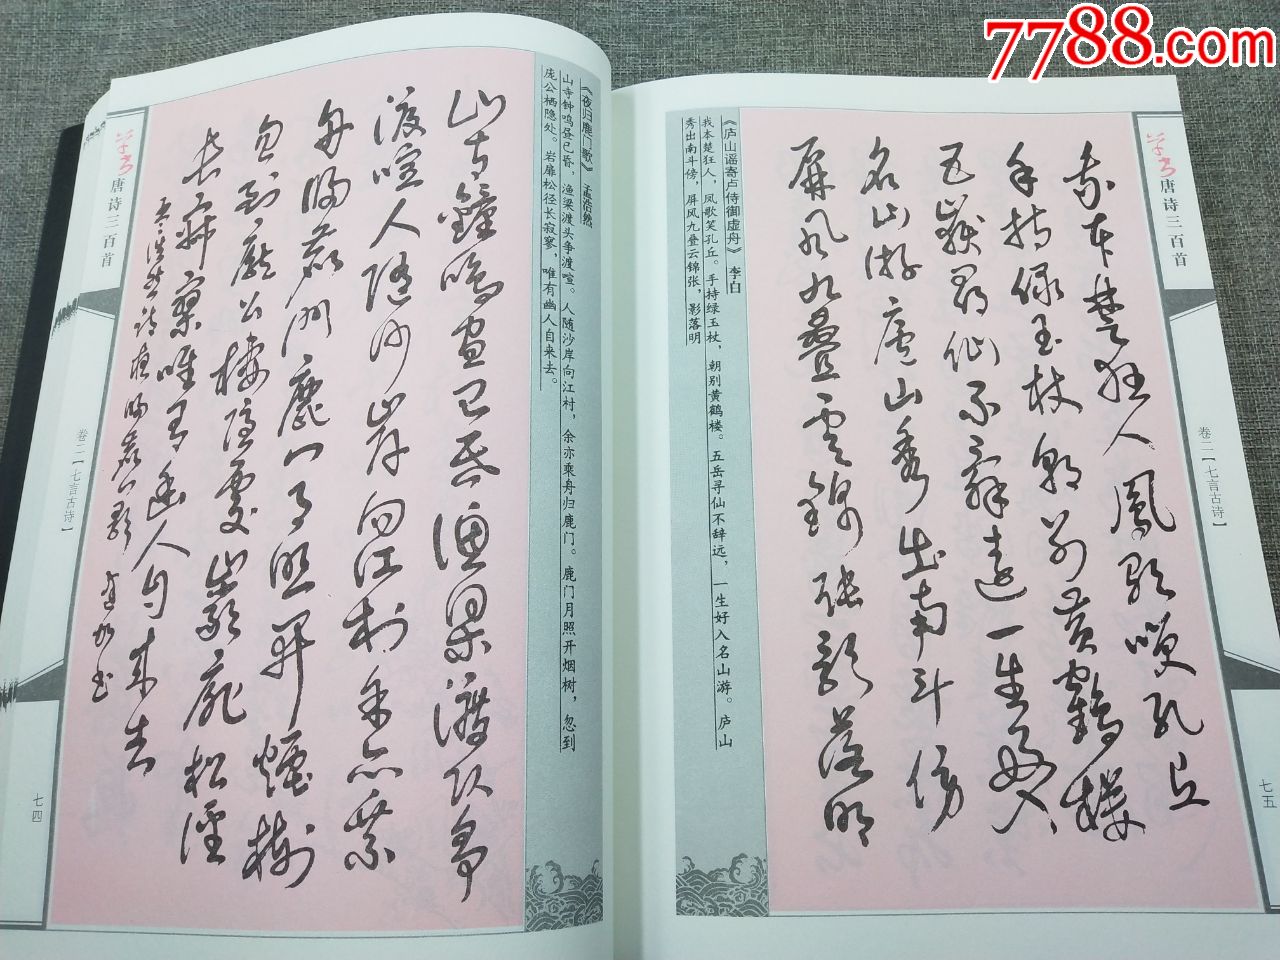 7788.com
草书
唐诗三百首
卷二【七言古诗】
七四
《夜归鹿门歌》 孟浩然
山寺钟鸣昼已昏，渔梁渡头争渡喧。人随沙岸向江村，余亦乘舟归鹿门。鹿门月照开烟树，忽到
庞公栖隐处。岩扉松径长寂寥，唯有幽人自来去。
山寺鐘鳴昼已昏漁梁渡頭争
渡喧人随沙岸向江村余亦乘
舟歸鹿門鹿門月照開煙樹
忽到龐公棲隱處岩扉松徑
長寂寥唯有幽人自来去
孟浩然詩夜歸鹿門歌
草书
唐诗三百首
卷二【七言古诗】
七五
《庐山谣寄卢侍御虚舟》 李白
我本楚狂人，凤歌笑孔丘。手持绿玉杖，朝别黄鹤楼。五岳寻仙不辞远，一生好入名山游。庐山
秀出南斗傍，屏风九叠云锦张，影落明
我本楚狂人鳳歌笑孔丘
手持緑玉杖朝别黄鶴樓
五嶽尋仙不辭遠一生好入
名山游廬山秀出南斗傍
屏風九疊雲錦張影落明